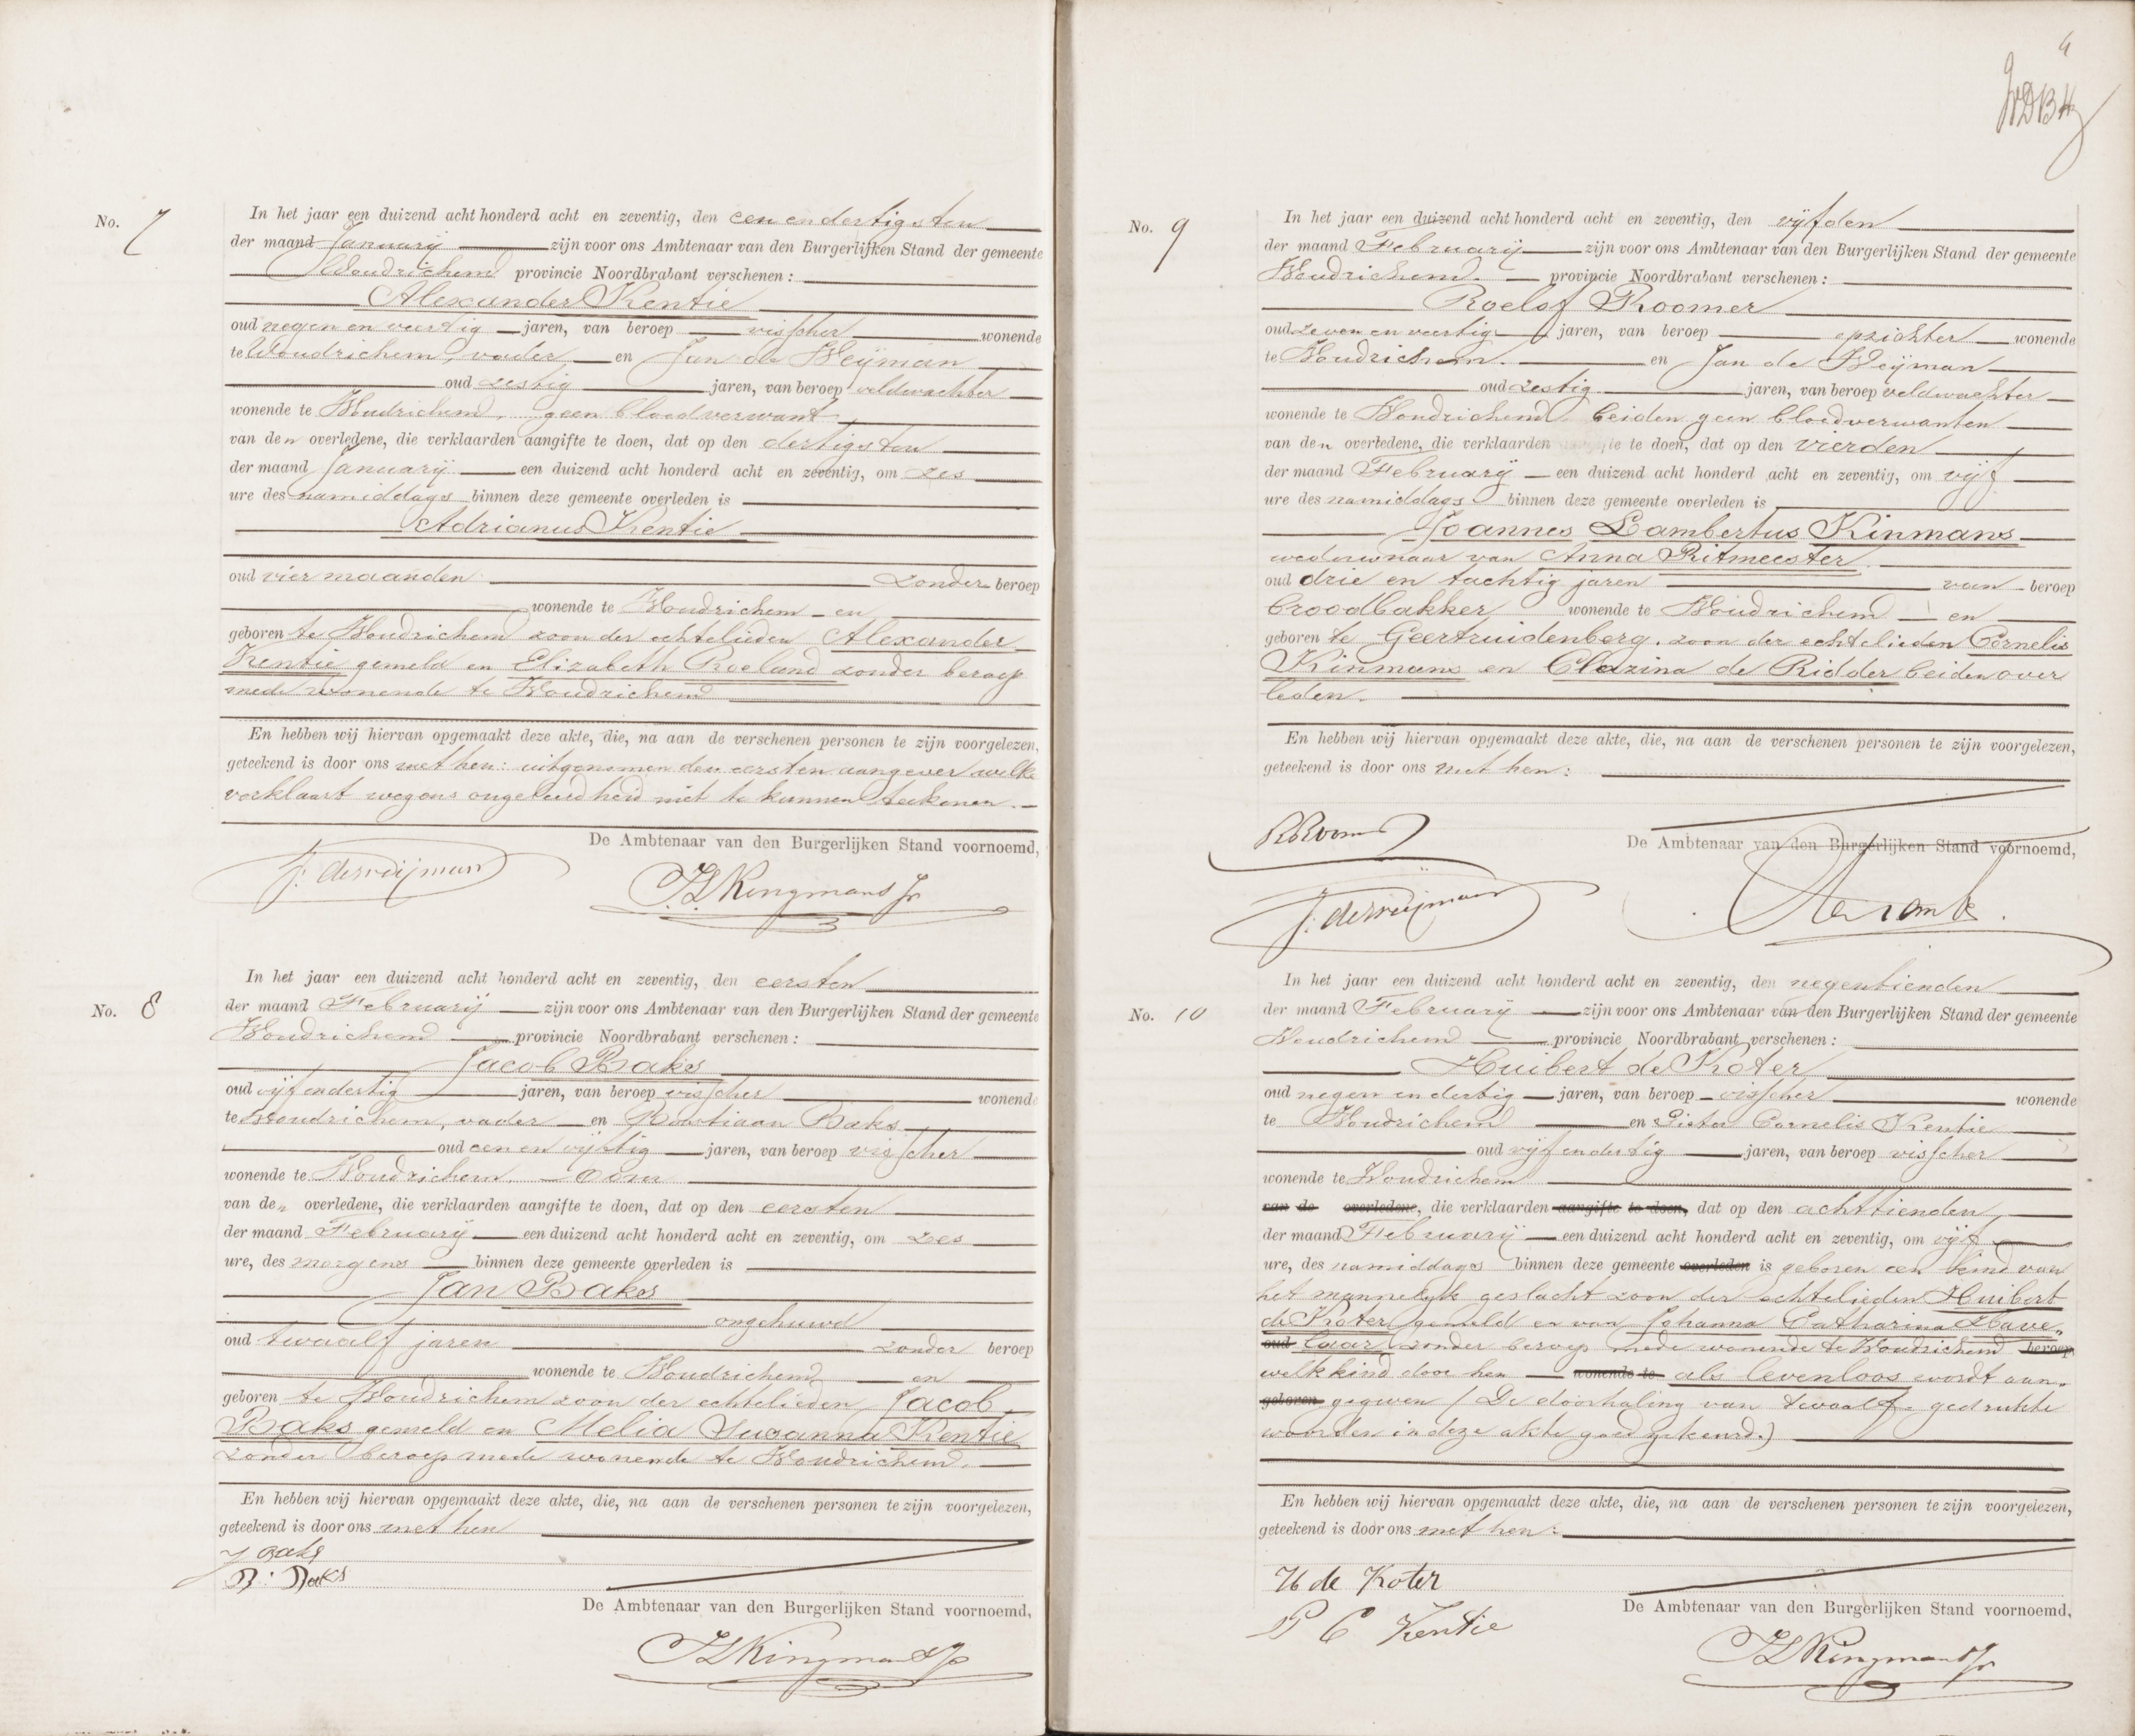 No. 7
In het jaar een duizend acht honderd acht en zeventig, den een en dertigsten
der maand Januarij zijn voor ons Ambtenaar van den Burgerlijken Stand der gemeente
Woudrichem provincie Noordbrabant verschenen:
Alexander Kentie
oud negen en veertig jaren, van beroep visscher wonende
te Woudrichem, vader en Jan de Weijman
oud zestig jaren, van beroep veldwachter
wonende te Woudrichem, geen bloedverwant
van den overledene, die verklaarden aangifte te doen, dat op den dertigsten
der maand Januarij een duizend acht honderd acht en zeventig, om zes
ure des namiddags binnen deze gemeente overleden is
Adrianus Kentie
oud vier maanden zonder beroep
wonende te Woudrichem en
geboren te Woudrichem zoon der echtelieden Alexander
Kentie gemeld en Elizabeth Roeland zonder beroep
mede wonende te Woudrichem
En hebben wij hiervan opgemaakt deze akte, die, na aan de verschenen personen te zijn voorgelezen,
geteekend is door ons met hen: uitgenomen den eersten aangever welke
verklaart wegens ongeleerdheid niet te kunnen teekenen.
De Ambtenaar van den Burgerlijken Stand voornoemd,
J: de Weijman
No. 8
In het jaar een duizend acht honderd acht en zeventig, den eersten
der maand Februarij zijn voor ons Ambtenaar van den Burgerlijken Stand der gemeente
Woudrichem provincie Noordbrabant verschenen:
Jacob Baks
oud vijf en dertig jaren, van beroep visscher wonende
te Woudrichem, vader en Bastiaan Baks
oud een en vijftig jaren, van beroep visscher
wonende te Woudrichem. Oom
van den overledene, die verklaarden aangifte te doen, dat op den eersten
der maand Februarij een duizend acht honderd acht en zeventig, om zes
ure, des morgens binnen deze gemeente overleden is
Jan Baks
ongehuwd
oud twaalf jaren zonder beroep
wonende te Woudrichem en
geboren te Woudrichem zoon der echtelieden Jacob
Baks gemeld en Melia Susanna Kentie
zonder beroep mede wonende te Woudrichem.
En hebben wij hiervan opgemaakt deze akte, die, na aan de verschenen personen te zijn voorgelezen,
geteekend is door ons met hen
J Baks
B: Baks
De Ambtenaar van den Burgerlijken Stand voornoemd,
4
No. 9
In het jaar een duizend acht honderd acht en zeventig, den vijfden
der maand Februarij zijn voor ons Ambtenaar van den Burgerlijken Stand der gemeente
Woudrichem. provincie Noordbrabant verschenen:
Roelof Roomer
oud zeven en veertig jaren, van beroep opzichter wonende
te Woudrichem. en Jan de Weijman
oud zestig jaren, van beroep veldwachter
wonende te Woudrichem beiden geen bloedverwanten
van den overledene, die verklaarden aangifte te doen, dat op den vierden
der maand Februarij een duizend acht honderd acht en zeventig, om vijf
ure des namiddags binnen deze gemeente overleden is
Joannes Lambertus Kinmans
weduwnaar van Anna Ritmeester.
oud drie en tachtig jaren van beroep
broodbakker wonende te Woudrichem en
geboren te Geertruidenberg. zoon der echtelieden Cornelis
Kinmans en Clazina de Ridder beiden over
leden.
En hebben wij hiervan opgemaakt deze akte, die, na aan de verschenen personen te zijn voorgelezen,
geteekend is door ons met hen:
De Ambtenaar van den Burgerlijken Stand voornoemd,
J: de Weijman
No. 10
In het jaar een duizend acht honderd acht en zeventig, den negentienden
der maand Februarij zijn voor ons Ambtenaar van den Burgerlijken Stand der gemeente
Woudrichem provincie Noordbrabant verschenen:
Huibert de Koter
oud negen en dertig jaren, van beroep visscher wonende
te Woudrichem en Pieter Cornelis Kentie
oud vijf en dertig jaren, van beroep visscher
wonende te Woudrichem
van de overledene, die verklaarden aangifte te doen, dat op den achttienden
der maand Februarij een duizend acht honderd acht en zeventig, om vijf
ure, des namiddags binnen deze gemeente overleden is geboren een kind van
het mannelijk geslacht zoon der echtelieden Huibert
de Koter gemeld en van Johanna Catharina Have„
oud laar zonder beroep mede wonende te Woudrichem beroep
welk kind door hen wonende te als levenloos wordt aan„
geboren gegeven (De doorhaling van twaalf gedrukte
woorden in deze akte goedgekeurd.)
En hebben wij hiervan opgemaakt deze akte, die, na aan de verschenen personen te zijn voorgelezen,
geteekend is door ons met hen:
H de Koter
P C Kentie
De Ambtenaar van den Burgerlijken Stand voornoemd,